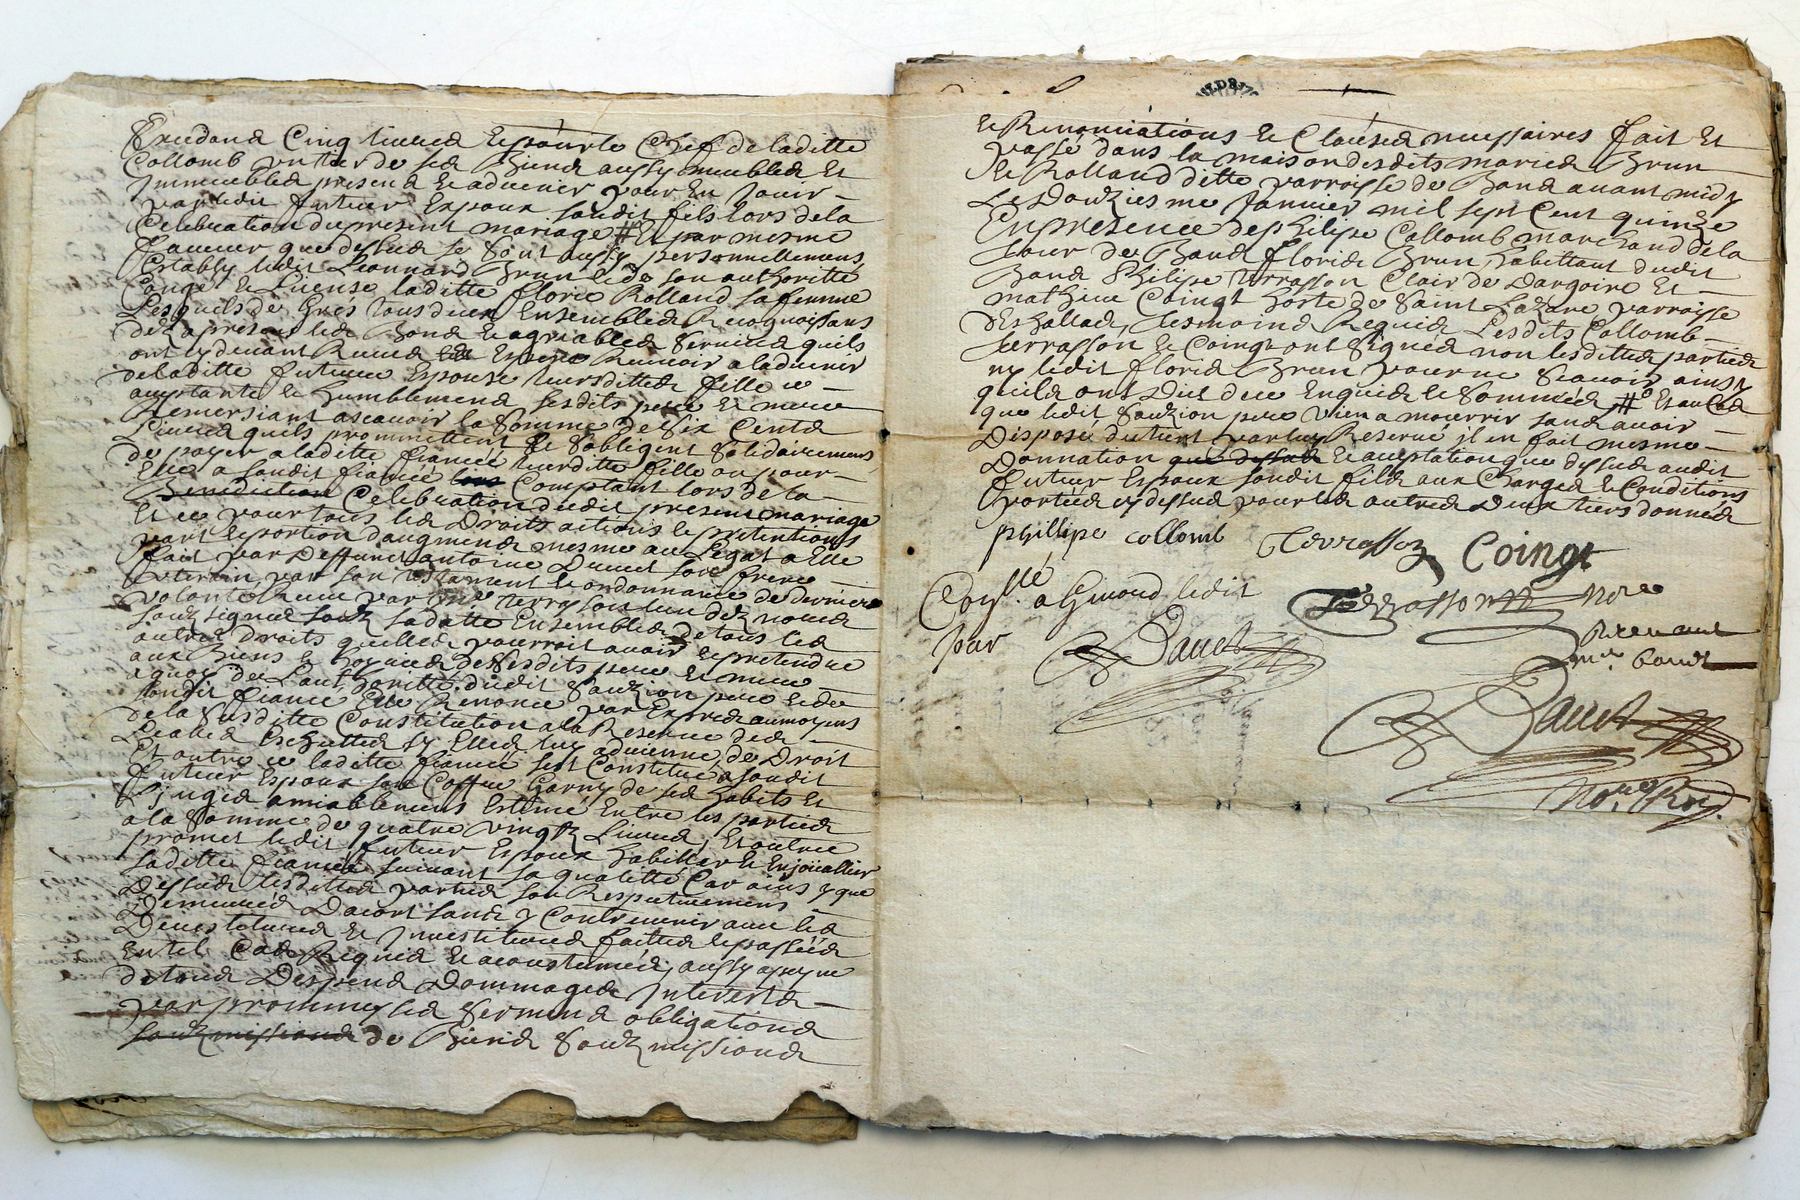 Cinq livres et pour le Chef de laditte
Collomb un tier de ses Biens aussy meubles et
Immeubles presens et advenir pour En Jouir
par ledit futeur Espoux sondit fils lors de la
Celebration du present mariage # Et par mesme
que dessus se sont aussy personnellement
Establys ledit Leonnard Brun et de son authoritté
Congé et License laditte florie Rolland sa femme
Lesquels de Grés tous deux Ensembles Recognoissans
dez a present les Bons et agreables services quils
ont cy devant Receu Esperent Recevoir a ladvenir
de laditte futeure Espouse leursdittes fille
aceptante et humblement sesdits pere et mere
Remersiant ascavoir la Somme de Six Cents
Livres quils promettent et s'obligent solidairement
de payer a laditte fiancée leurditte fille ou pour
Elle a sondit fiancé Comptant lors de la
Benediction Celebration dudit present mariage
Et ce pour tous ses Droits actions et pretentions
part et portion daugment mesme au Legat a Elle
fait par Deffunct antoine son frere
par son testament et ordonnance de derniere
volonté Receu par
soubsigné soub sa datte Ensembles de tous les
autres Droits quelles pourroit avoir et pretendre
aux Biens de sesdits pere et mere
a quoy de Lauthoritté dudit Souzion pere et de
sondit fiancé Elle Renonce par Exprés au moyens
de la susditte Constitution a la Reserve des
Escheuttes sy Elles luy advienne, de Droit
Et outre ce laditte fiancée sest Constitué a sondit
futeur Espoux son Coffre Garny de ses habits et
Linges amiablement Estimé Entre les parties
a la Somme de quatre vingts Livres, Et outre
promet ledit futeur Espoux habiller et Enjouallier
saditte fiancée suivant sa qualitté Car ainsy que
Dessus lesdittes parties son Respectivement
Demeurés Dacort sans y Contrevenir aux les
Devestitures et Investitures faittes et passées
En tel Cas Requis et acoustumés, aussy a peyne
de tous Despens Dommages Interests
par prommesses serments obligations
soubzmissions de Biens soubzmissions
et Renonciations et Clauses necessaires fait Et
passé dans la maison desdits maries Brun
et Rolland ditte parroisse de Bons avant midy
Le Douziesme Janvier mil sept Cent quinze
En presence de philipe Collomb marchand de la
de Bons floris Brun habittant dudit
Bons Philipe terrasson Clair de Dargoire Et
mathieu Coingt hoste de saint Lazare parroisse
tesmoins Requis Lesdits Collomb
terrasson et Coingt ont signés non lesdittes parties
ny ledit floris Brun pour ne scavoir ainsy
quils ont Dit de ce Enquis et Sommés # Et au Cas
que ledit Souzion pere vien a mourrir sans avoir
Disposé du tiers par luy Reservé il en fait mesme
Donnation que dessus Et aceptation que dessus audit
futeur Espoux sondit fils aux Charges et Conditions
portées cy dessus pour les autres deux tiers donnés
phillipe collomb Terrasson Coingt
a Givord ledit
par
Terrasson nore